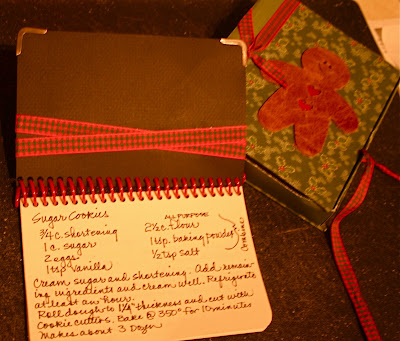 Sugar Cookies
3/4 c. shortening
1 c. sugar
2 eggs
1 tsp vanilla
ALL PURPOSE
2 1/2 c. flour
1 tsp. baking powder
1/2 tsp salt
combine
Cream sugar and shortening. Add remain-
ing ingredients and cream well. Refrigerate
at least an hour.
Roll dough to 1/4" thickness and cut with
Cookie cutters. Bake @ 350° for 10 minutes
Makes about 3 Dozn